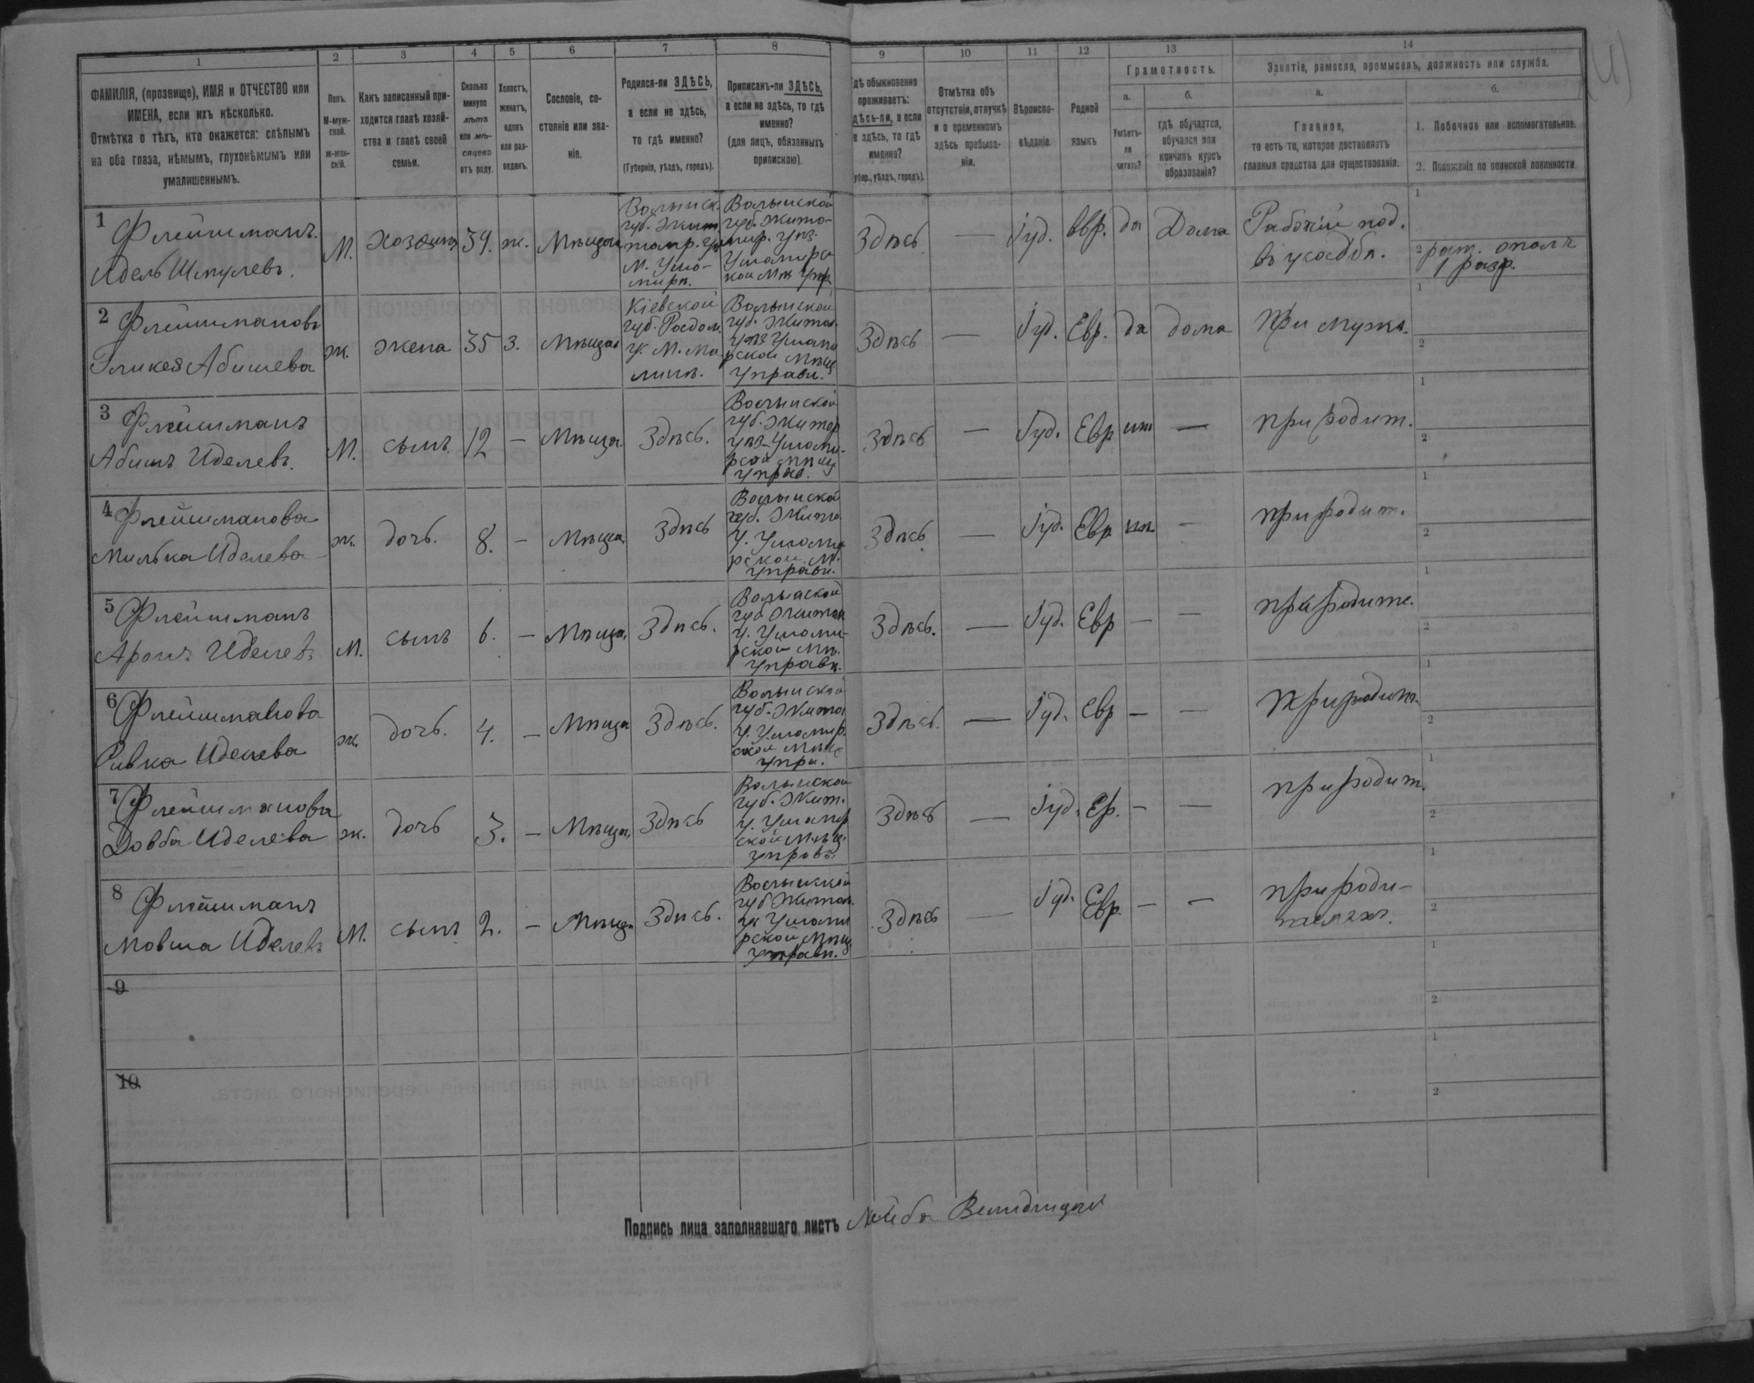 1 2 3 4 5 6 7 8 9 10 11 12 13 14
ФАМИЛІЯ, (прозвище), ИМЯ и ОТЧЕСТВО или
ИМЕНА, если ихъ нѣсколько.
Отмѣтка о тѣхъ, кто окажется: слѣпымъ
на оба глаза, нѣмымъ, глухонѣмымъ или
умалишеннымъ.
Полъ.
М-муж-
ской.
ж-жен-
скій.
Какъ записанный при-
ходится главѣ хозяй-
ства и главѣ своей
семьи.
Сколько
минуло
лѣтъ
или мѣ-
сяцевъ
отъ роду.
Холостъ,
женатъ,
вдовъ
или раз-
веденъ.
Сословіе, со-
стояніе или зва-
ніе.
Родился-ли ЗДѢСЬ,
а если не здѣсь,
то гдѣ именно?
(Губернія, уѣздъ, городъ).
Приписанъ-ли ЗДѢСЬ,
а если не здѣсь, то гдѣ
именно?
(для лицъ, обязанныхъ
припискою).
Гдѣ обыкновенно
проживаетъ:
здѣсь-ли, а если
не здѣсь, то гдѣ
именно?
(губер., уѣздъ, городъ).
Отмѣтка объ
отсутствіи, отлучкѣ
и о временномъ
здѣсь пребыва-
ніи.
Вѣроиспо-
вѣданіе.
Родной
языкъ
Грамотность.
а.
Умѣетъ-
ли
читать?
б.
гдѣ обучается,
обучался или
кончилъ курсъ
образованія?
Занятіе, ремесло, промыселъ, должность или служба.
а.
Главное,
то есть то, которое доставляетъ
главныя средства для существованія.
б.
1. Побочное или вспомогательное.
2. Положеніе по воинской повинности.
1 Флейшманъ
Идель Шмулевъ.
М. хозяинъ 39. ж. Мѣщан
Волынск.
губ. Жит
томир. у
М. Ушо-
мирѣ.
Волынской
губ. Жито-
мир. уѣз.
Ушомирс
кой Мѣ Упр
Здѣсь — Іуд. Евр. да Дома
Рабочій под.
въ усадьб.
1
2 рат. ополч
1 разр.
2 Флейшманова
Гликея Абишева
ж. жена 35 з. Мѣщан
Кіевской
губ. Радом
у. М. Ма
линѣ.
Волынской
губ. Житом
уѣз Ушоми
рской Мѣщ
Управл.
Здѣсь — Іуд. Евр. да дома При мужѣ.
1
2
3 Флейшманъ
Абишъ Иделевъ.
М. сынъ 12 — Мѣща. Здѣсь.
Волынской
губ. Житом
уѣз. Ушоми-
рской Мѣщ
Управ.
Здѣсь — Іуд. Евр нѣт — При родит.
1
2
4 Флейшманова
Милька Иделева
ж. дочь. 8. — Мѣща. Здѣсь
Волынской
губ. Житом
у. Ушоми
рской М.
Управл.
Здѣсь — Іуд. Евр нѣт — При родит.
1
2
5 Флейшманъ
Аронъ Иделевъ
М. сынъ 6. — Мѣща. Здѣсь.
Волынской
губ Житом
у. Ушоми-
рской Мѣ.
Управл.
Здѣсь. — Іуд. Евр — — При родите.
1
2
6 Флейшманова
Сивка Иделева
ж. дочь. 4. — Мѣща Здѣсь.
Волынской
губ. Житом
у. Ушомир
ской Мѣщ
Упра.
Здѣсь. — Іуд. Евр — — При родит.
1
2
7 Флейшманова
Довба Иделева
ж. дочь 3. — Мѣща. Здѣсь
Волынской
губ. Жит.
у. Ушомир
ской Мѣщ.
управ.
Здѣсь — Іуд. Ев. — — При родит.
1
2
8 Флейшманъ
Мовша Иделевъ
М. сынъ 2. — Мѣща Здѣсь.
Волынской
губ Житом
у. Ушоми
рской Мѣщ
Управл.
Здѣсь — Іуд. Евр. — —
При роди-
теляхъ.
1
2
9
1
2
10
1
2
Подпись лица заполнявшаго листъ Лейба